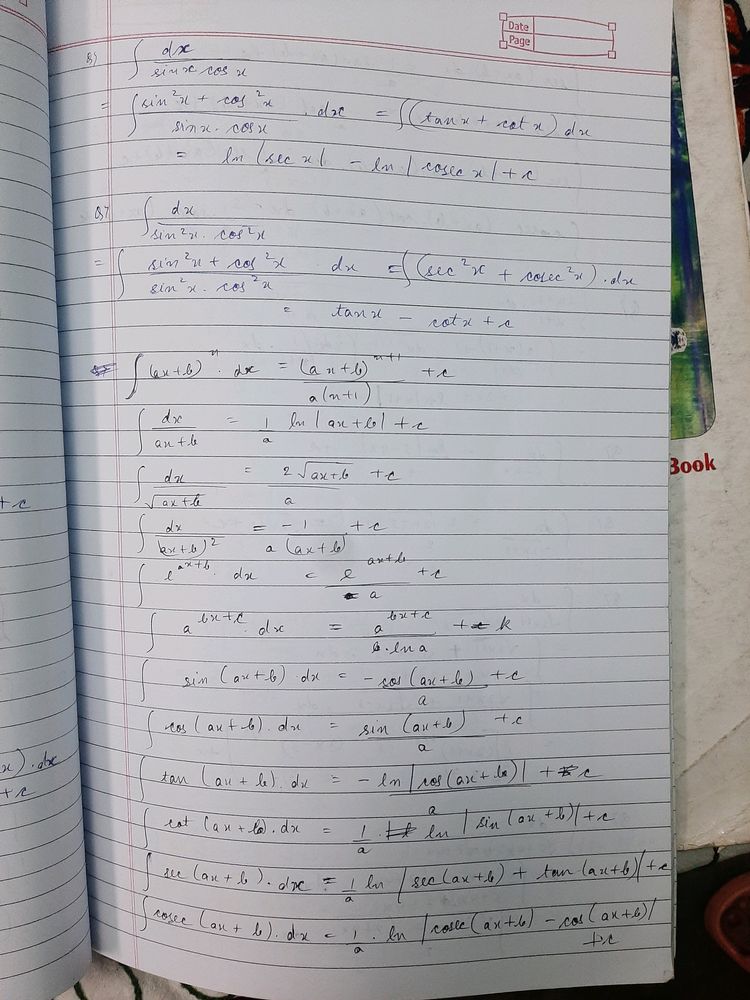 Date
Page
Q) ∫ dx / sinx cos x
= ∫ sin²x + cos²x / sinx . cosx . dx = ∫(tanx + cotx) dx
= ln |sec x| - ln |cosec x| + c
Q) ∫ dx / sin²x . cos²x
= ∫ sin²x + cos²x / sin²x . cos²x dx = ∫(sec²x + cosec²x) . dx
= tanx - cotx + c
∫(ax+b)ⁿ . dx = (ax+b)ⁿ⁺¹ / a(n+1) + c
∫ dx / ax+b = 1/a ln |ax+b| + c
∫ dx / √ax+b = 2√ax+b / a + c
∫ dx / (ax+b)² = -1 / a(ax+b) + c
∫ e^ax+b . dx = e^ax+b / a + c
∫ a^bx+c . dx = a^bx+c / b.ln a + k
∫ sin (ax+b) dx = -cos(ax+b) / a + c
∫ cos (ax+b) . dx = sin (ax+b) / a + c
∫ tan (ax+b) . dx = - ln|cos(ax+b)| / a + c
∫ cot (ax+b) . dx = 1/a . ln |sin(ax+b)| + c
∫ sec(ax+b) . dx = 1/a ln |sec(ax+b) + tan(ax+b)| + c
∫ cosec (ax+b) . dx = 1/a . ln |cosec(ax+b) - cos(ax+b)|
+c
+ c
x) . dx
+ c
Book